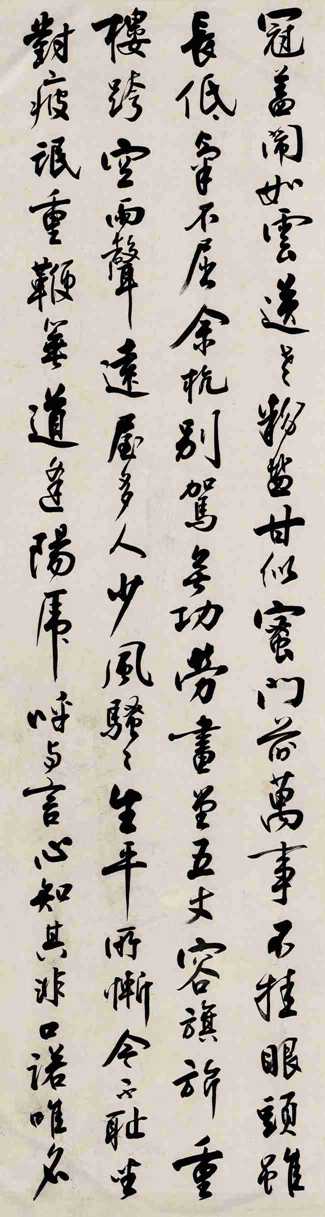 冠盖鬧如雲送老粉盐甘似蜜門前萬事不挂眼頭雖
長低氣不屈余杭别駕無功勞畫堂五丈容旗旂重
樓跨空雨聲遠屋多人少風騷々生平所慚今不耻坐
對疲氓重鞭箠道逢陽虎呼与言心知其非口諾唯名